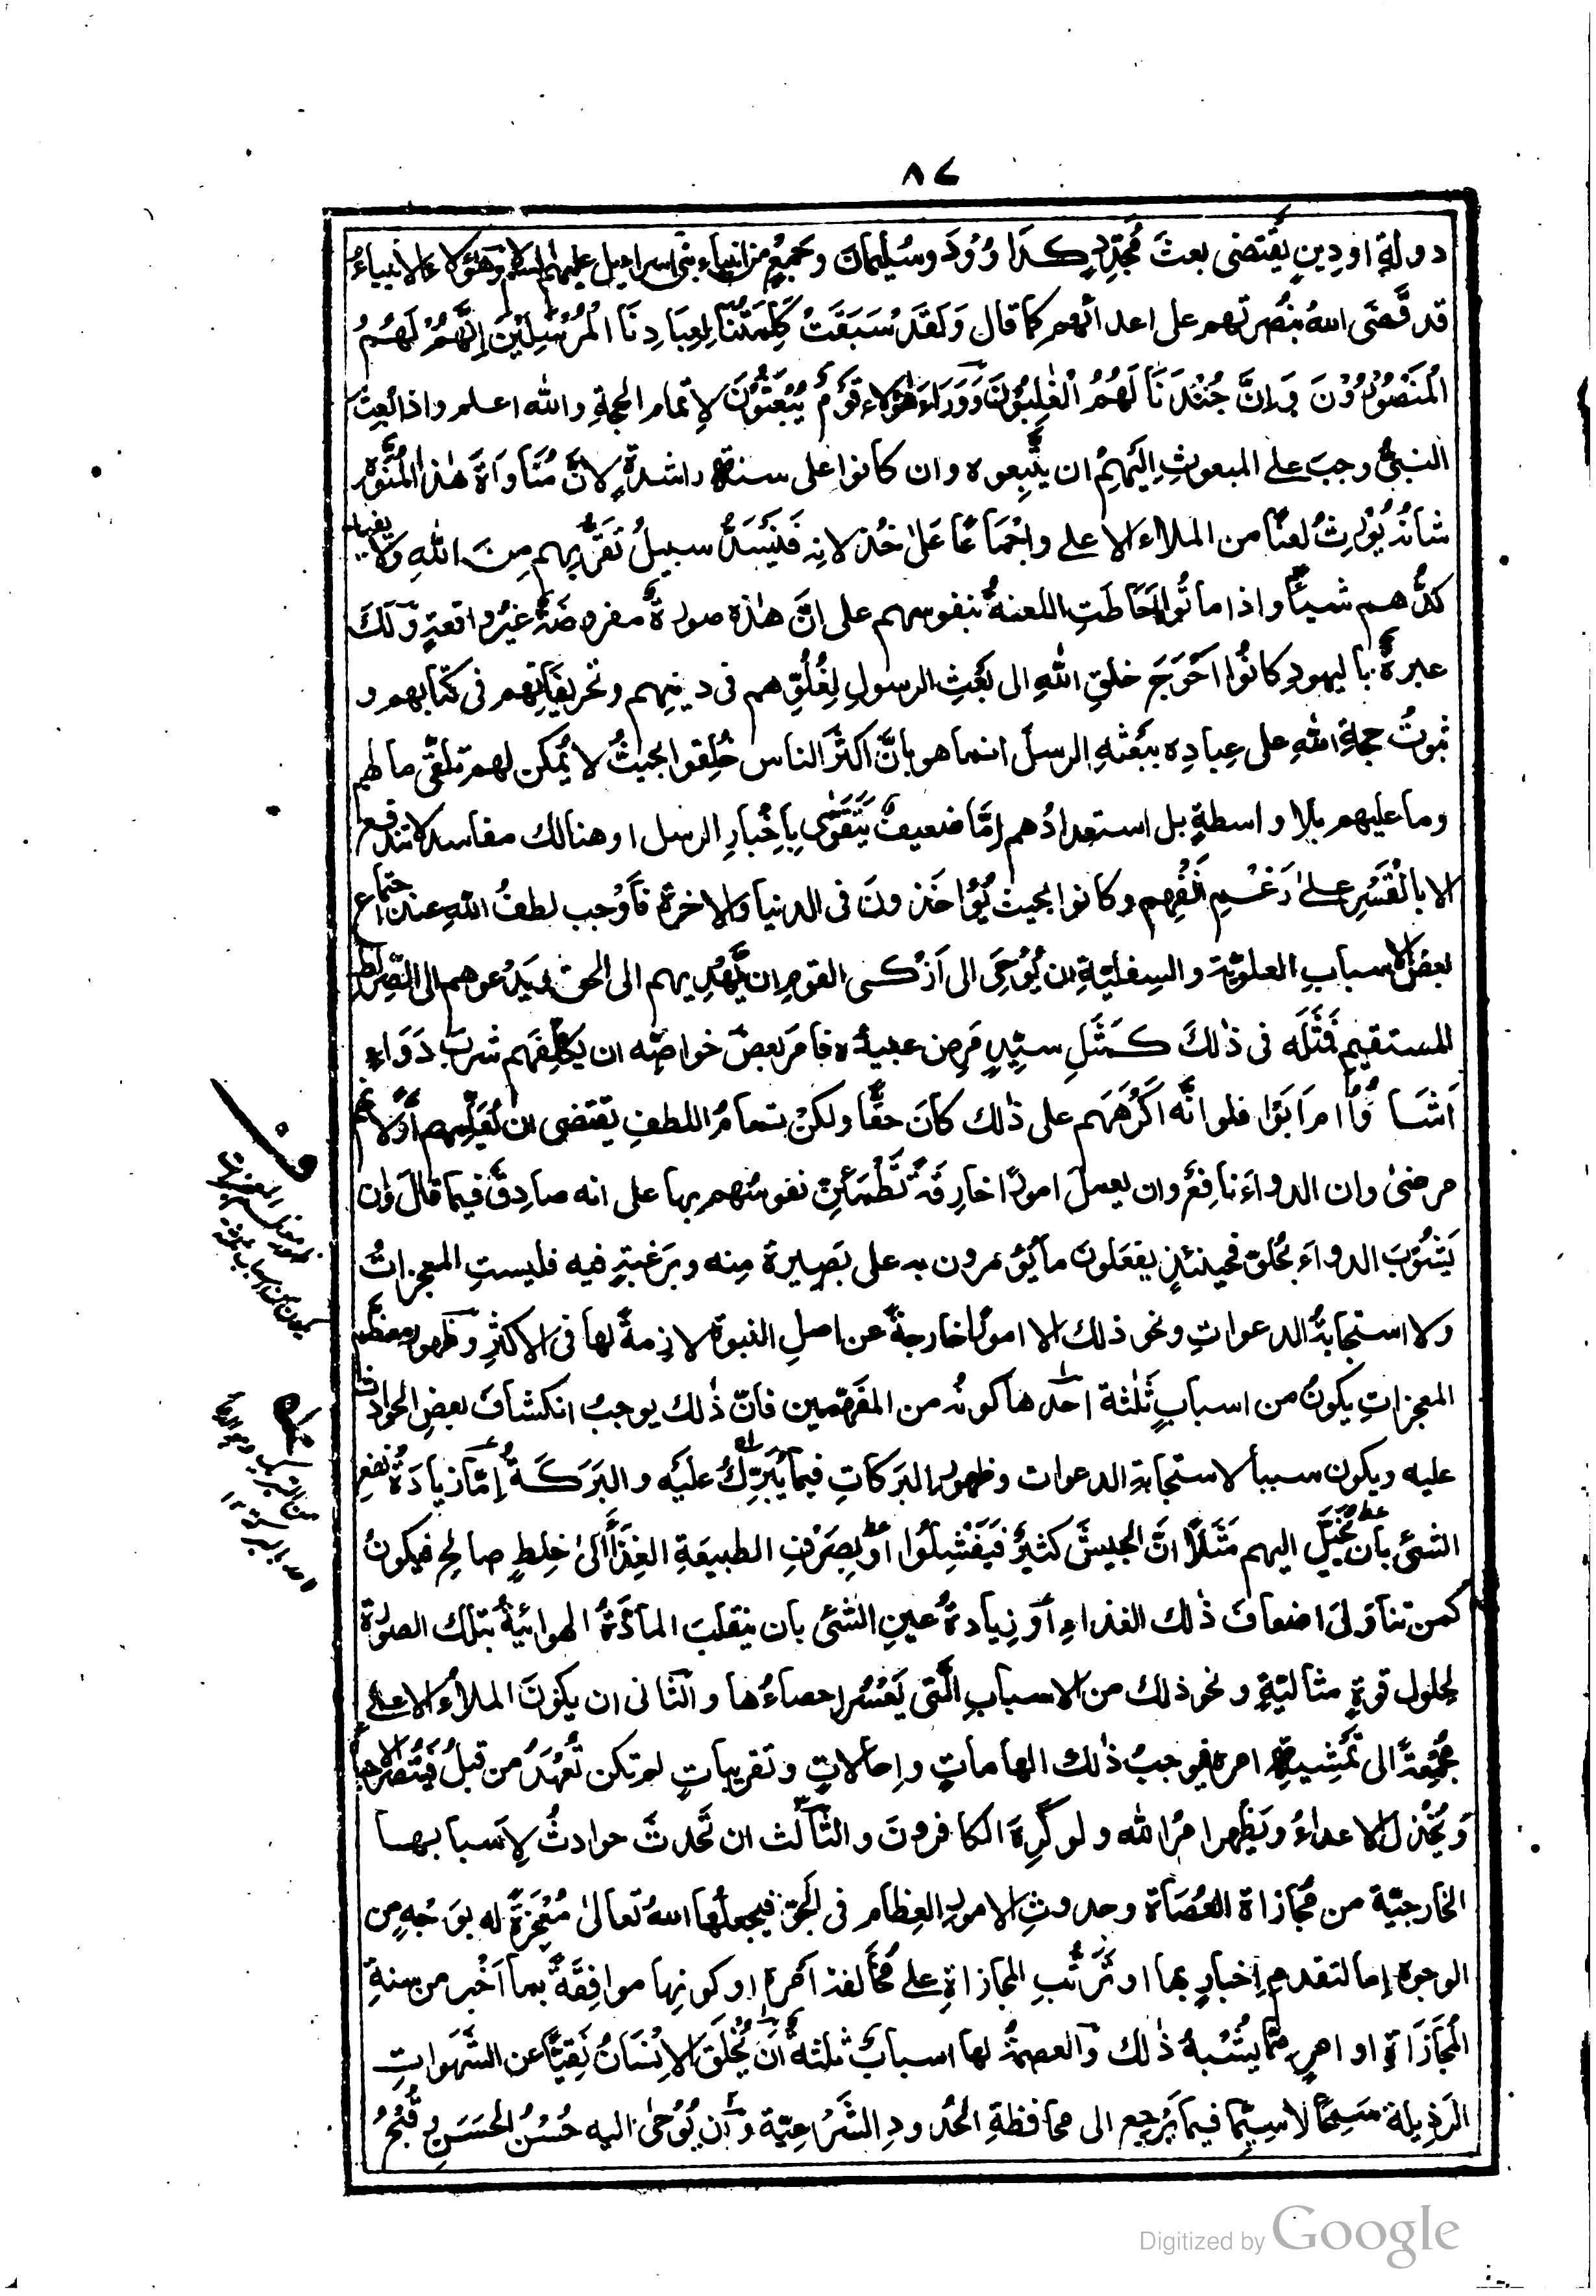 ٨٧
دولةٍ او دِينٍ يَقْتضى بعثَ مُجَدِّدٍ كَدَاوُوْدَ وسُلَيمانَ وجمعٍ من انبياءِ بنى اسراءيل عليهم السلام وَهٰؤلاء الانبياءُ
قد قَضَى اللهُ بنُصرتهم على اعدائهم كما قال وَلَقَدْ سَبَقَتْ كَلِمَتُنَا لِعِبَادِنَا الْمُرْسَلِيْنَ اِنَّهُمْ لَهُمُ
الْمَنْصُوْرُوْنَ وَاِنَّ جُنْدَنَا لَهُمُ الْغٰلِبُوْنَ وَوَرَاءَ هٰؤلاء قَوْمٌ يُبْعَثُوْنَ لاِتمام الحجةِ والله اعلم واذا بُعِثَ
النبىُّ وجبَ على المبعوثِ اِلَيهِمْ ان يتَّبِعوه وان كانوا على سنةٍ راشدةٍ لانَّ مُنَاوَاةَ هٰذا المُنَوَّهِ
شانُهُ يُوْرِثُ لعنًا من الملاء الاعلے واِجْمَاعًا عَلىٰ خُذلانِهِ فَيَنْسَدُّ سبيلُ تَقَرُّبِهِم مِنَ اللّٰهِ ولا يفيد
كَدُّهم شيئًا واذا ماتُوا اَحَاطَتِ اللعنةُ بنفوسهم على انَّ هٰذه صورةٌ مفروضَةٌ غيرُ واقعةٍ وَلَكَ
عبرةٌ باليهودِ كانُوا اَحْوَجَ خلقِ اللّٰهِ الى بَعْثِ الرسولِ لِغُلُوِّهم فى دينهِم وتحريفَاتِهم فى كتابهم و
ثبوتُ حجةِ اللهِ على عِبادِه ببَعْثهِ الرسلَ انما هو بانَّ اكثرَ الناس خُلِقوا بحيثُ لا يُمكن لهم تلَقِّى ما لهم
وما عليهم بلا واسطةٍ بل استعدادُهم اِمَّا ضعيفٌ يَتَقَوّٰى بِاِخْبارِ الرسل او هنالك مفاسد لا تندفع
الا بالْقَسْرِ علےٰ رَغْمِ اَنْفِهِم وكانوا بحيث يُؤاخَذونَ فى الدنيا والاخرة فَاَوْجب لطفُ اللهِ عند اجتماعِ
بعضِ الاسبابِ العلويّة والسفليّةِ ان يُوْحَى الى اَزْكى القومِ ان يَّهْدِيهم الى الحق ويَدْعوهم الى الصّراط
المستقيم فَمَثَلُه فى ذٰلكَ كَمَثَلِ سيِّدٍ مَرِضَ عبيدُه فامَرَ بعضَ خواصِّه ان يكلِّفَهم شربَ دَوَاءٍ
اَشَاؤُا امْ اَبَوْا فلو انَّه اَكْرَهَهم على ذٰلك كانَ حقًّا ولكنْ تمامُ اللطفِ يقتضى ان يُعَلِّمَهم اَوَّلاً انهم
مرضىٰ وان الدواءَ نافِعٌ وان يعملَ امورًا خارِقَةً تَطْمَئِنُّ نفوسُهم بها على انه صادِقٌ فيما قالَ وان
يَّشُوْبَ الدواءَ بحُلوٍ فحينئذٍ يفعَلونَ ما يُؤمرون به على بَصِيرة مِنه وبرَغبةٍ فيه فليستِ المعجزاتُ
ولا استجابةُ الدعواتِ ونحو ذلك الا امورًا خارجةً عن اصلِ النبوة لازمةً لها فى الاكثرِ وظهور معظمِ
المعجزاتِ يكونُ من اسبابٍ ثَلٰثة احدها كونُه من المفَهَّمين فانّ ذٰلك يوجبُ انكشافَ بعضِ الحوادث
عليه ويكون سببًا لاستجابةِ الدعوات وظهورِ البرَكاتِ فيما يُبَرِّكُ عليَه والبَرَكَةُ اِمّا زيادَةُ نفعِ
الشئى بأن يُخَيَّل اليهم مَثَلاً انَّ الجيشَ كثيرٌ فيَفْشِلُوا اوْ بصَرْفِ الطبيعَةِ الغِذَاَ الىٰ خِلطٍ صالحٍ فيكونُ
كمن تناوَلَ اضعافَ ذٰلك الغذاءِ اَوْ زيادةُ عينِ الشئى بان ينقلبَ المادَّةُ الهوائيةُ بتلك الصورة
لحلول قوةٍ مثاليّةٍ ونحو ذلك من الاسبابِ الَّتى يَعْسُرُ احصاءُها والثانى ان يكونَ الملأُ الاعلے
مُجْمِعةً الى تَمْشِيةِ امره فيوجبُ ذٰلك الهاماتٍ واحالاتٍ وتقريباتٍ لم تكن تُعْهَدُ من قبلُ فيُنْصَرُ الاحباءُ
وَيُخْذَلُ الاعداءُ ويَظْهر امرُ الله ولو كَرِهَ الكافرونَ والثَّالث ان تَحْدثَ حوادثُ لِاَسبابها
الخارجيّة من مُجازاة العُصَاة وحدوثِ الامورِ العِظام فى الجوّ فيجعلُها اللهُ تعالىٰ مُعْجِزَةً له بوَجْهٍ من
الوجوهِ اِما لتقدمِ اِخبارٍ بها او تَرَتُّبِ المجازاةِ علے مُخالفة اَمْره او كونِها موافِقَةً بما اَخْبر من سنةِ
المُجَازَاةِ او امرٍ مّما يُشْبهُ ذٰلك وَالعصمةُ لها اسبابٌ ثلثةٌ اَن يُّخلَقَ الاِنسَانُ نَقِيًّا عن الشَّهَواتِ
الرَذِيلة سَمِحًا لاسِيَّما فيما يَرْجِع الى محافظةِ الحُدودِ الشَّرْعيّة وَاَن يُّوْحىٰ اليه حُسْنُ الحَسَنِ وقُبْحُ
Digitized by Google